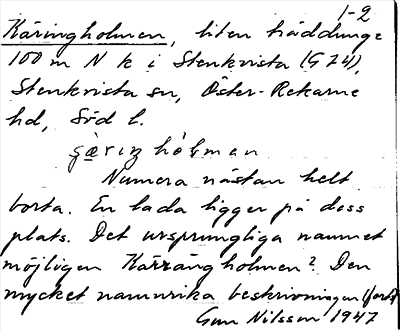 1-2
Käringholmen, liten träddunge
100 m N k i Stenkvista (G 74),
Stenkvista sn, Öster-Rekarne
hd, Söd l.
Numera nästan helt
borta. En lada ligger på dess
plats. Det ursprungliga namnet
möjligen Kärrängholmen? Den
mycket namnrika beskrivningen
Gun Nilsson 1947